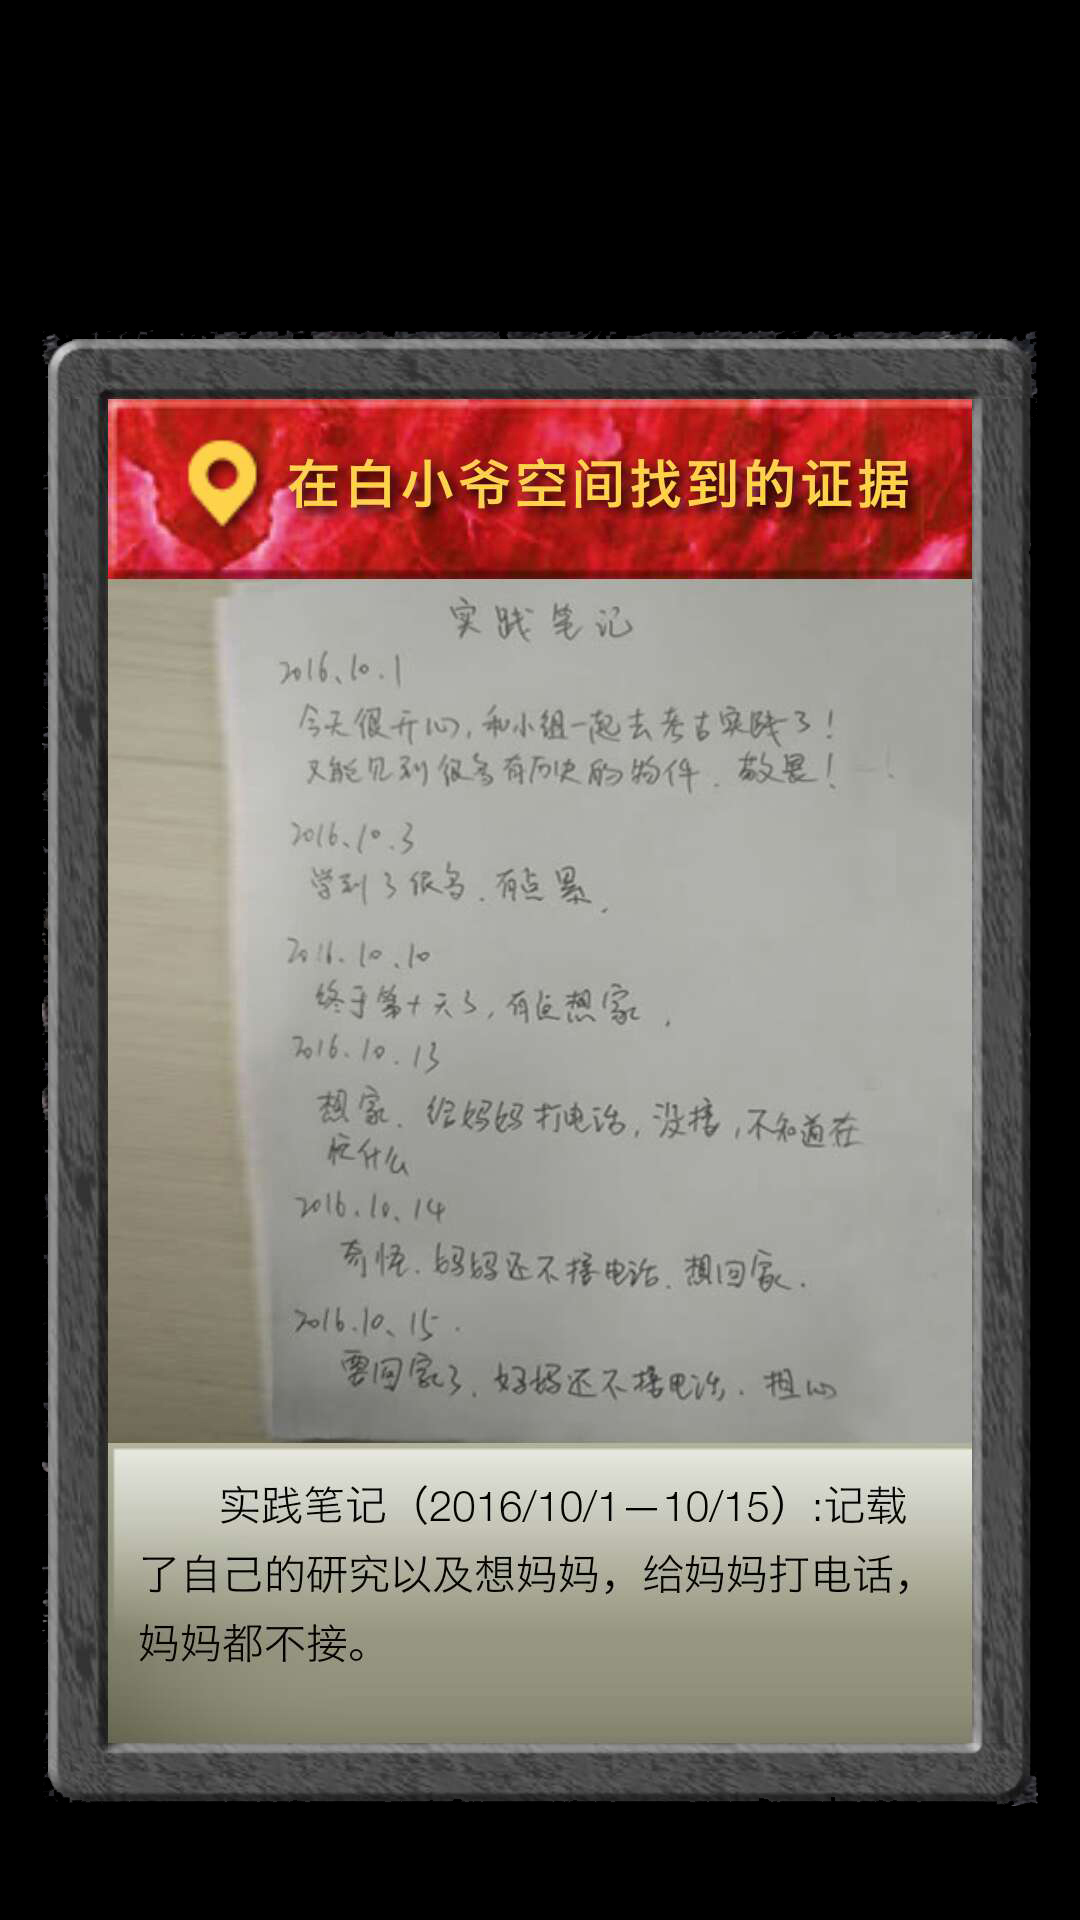 在白小爷空间找到的证据
实践笔记
2016.10.1
今天很开心,和小组一起去考古实践了!
又能见到很多有历史的物件.敬畏!
2016.10.3
学到了很多.有点累.
2016.10.10
终于第十天了,有点想家.
2016.10.13
想家.给妈妈打电话,没接,不知道在
忙什么
2016.10.14
奇怪.妈妈还不接电话.想回家.
2016.10.15.
要回家了.妈妈还不接电话.担心
实践笔记(2016/10/1—10/15):记载
了自己的研究以及想妈妈,给妈妈打电话,
妈妈都不接。